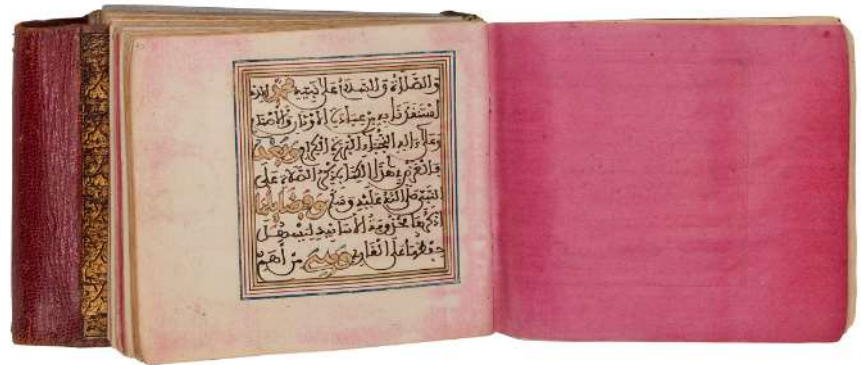 والصلاة والسلام على نبيه محمد الذي
استنقذنا به من عبادة الأوثان والأصنام
وعلى ءاله النجباء البررة الكرام وبعد
فالغرض في هذا الكتاب ذكر الصلاة على
النبي صلى الله عليه وسلم وفضايلها
نذكرها محذوفة الأسانيد ليسهل
حفظها على القارئ وهي من أهم